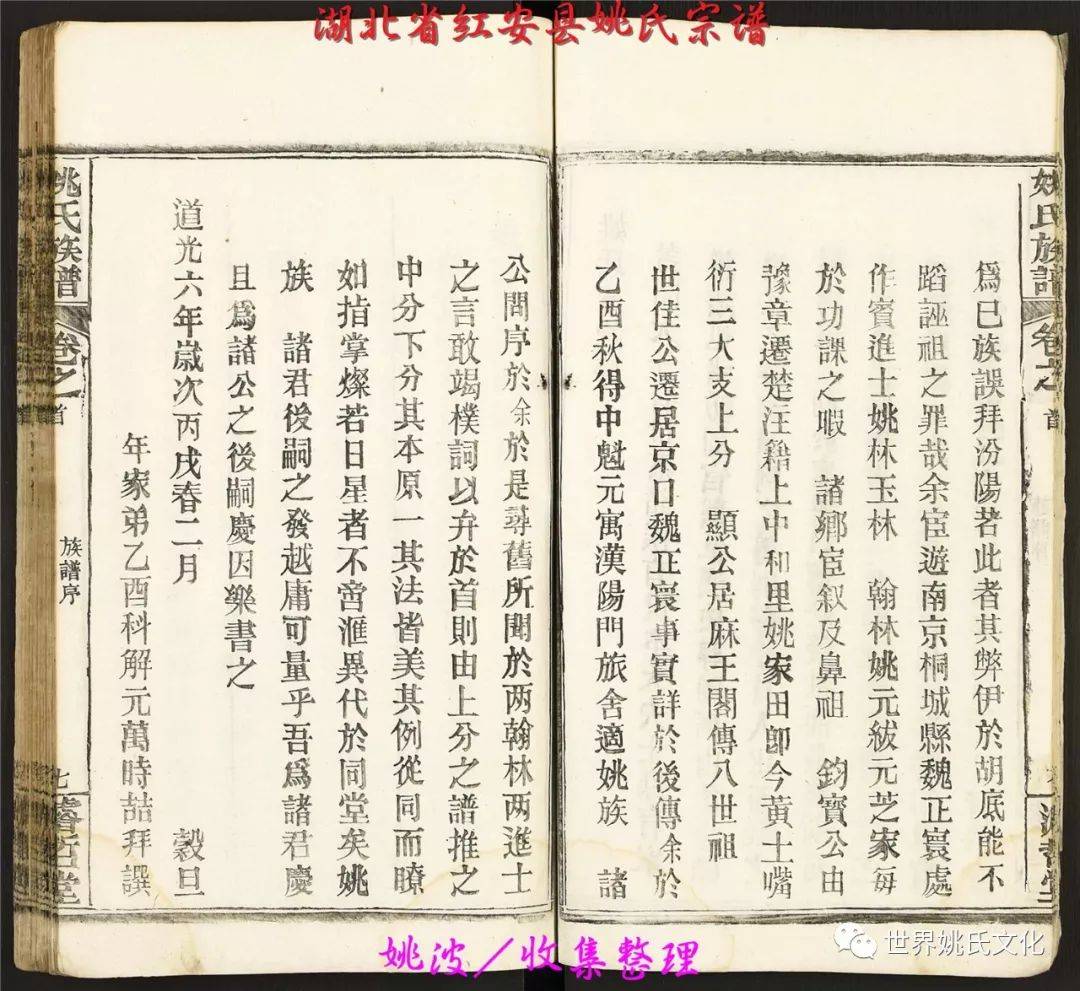 湖北省红安县姚氏宗谱
姚氏族譜
卷之
首
爲已族誤拜汾陽若此者其弊伊於胡底能不
蹈誣祖之罪哉余宦遊南京桐城縣魏正寰處
作賓進士姚林玉林 翰林姚元紱元芝家每
於功課之暇 諸鄉宦叙及鼻祖 鈞寶公由
豫章遷楚汪籍上中和里姚家田卽今黃土嘴
衍三大支上分 顯公居麻王閣傳八世祖
世佳公遷居京口魏正寰事實詳於後傳余於
乙酉秋得中魁元寓漢陽門旅舍適姚族 諸
公問序於余於是尋舊所聞於两翰林两進士
之言敢竭樸詞以弁於首則由上分之譜推之
中分下分其本原一其法皆美其例從同而瞭
如指掌燦若日星者不啻滙異代於同堂矣姚
族 諸君後嗣之發越庸可量乎吾爲諸君慶
且爲諸公之後嗣慶因樂書之
道光六年歲次丙戌春二月 穀旦
年家弟乙酉科解元萬時喆拜譔
姚氏族譜
卷之
首
族譜序
七
堂
姚波／收集整理
世界姚氏文化